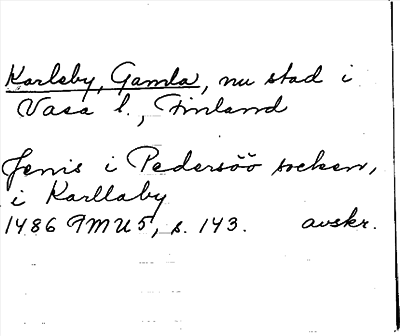 Karleby, Gamla, nu stad i
Vasa l., Finland
Jenis i Pedersöö socken,
i Karllaby
1486 FMU 5, s. 143. avskr.